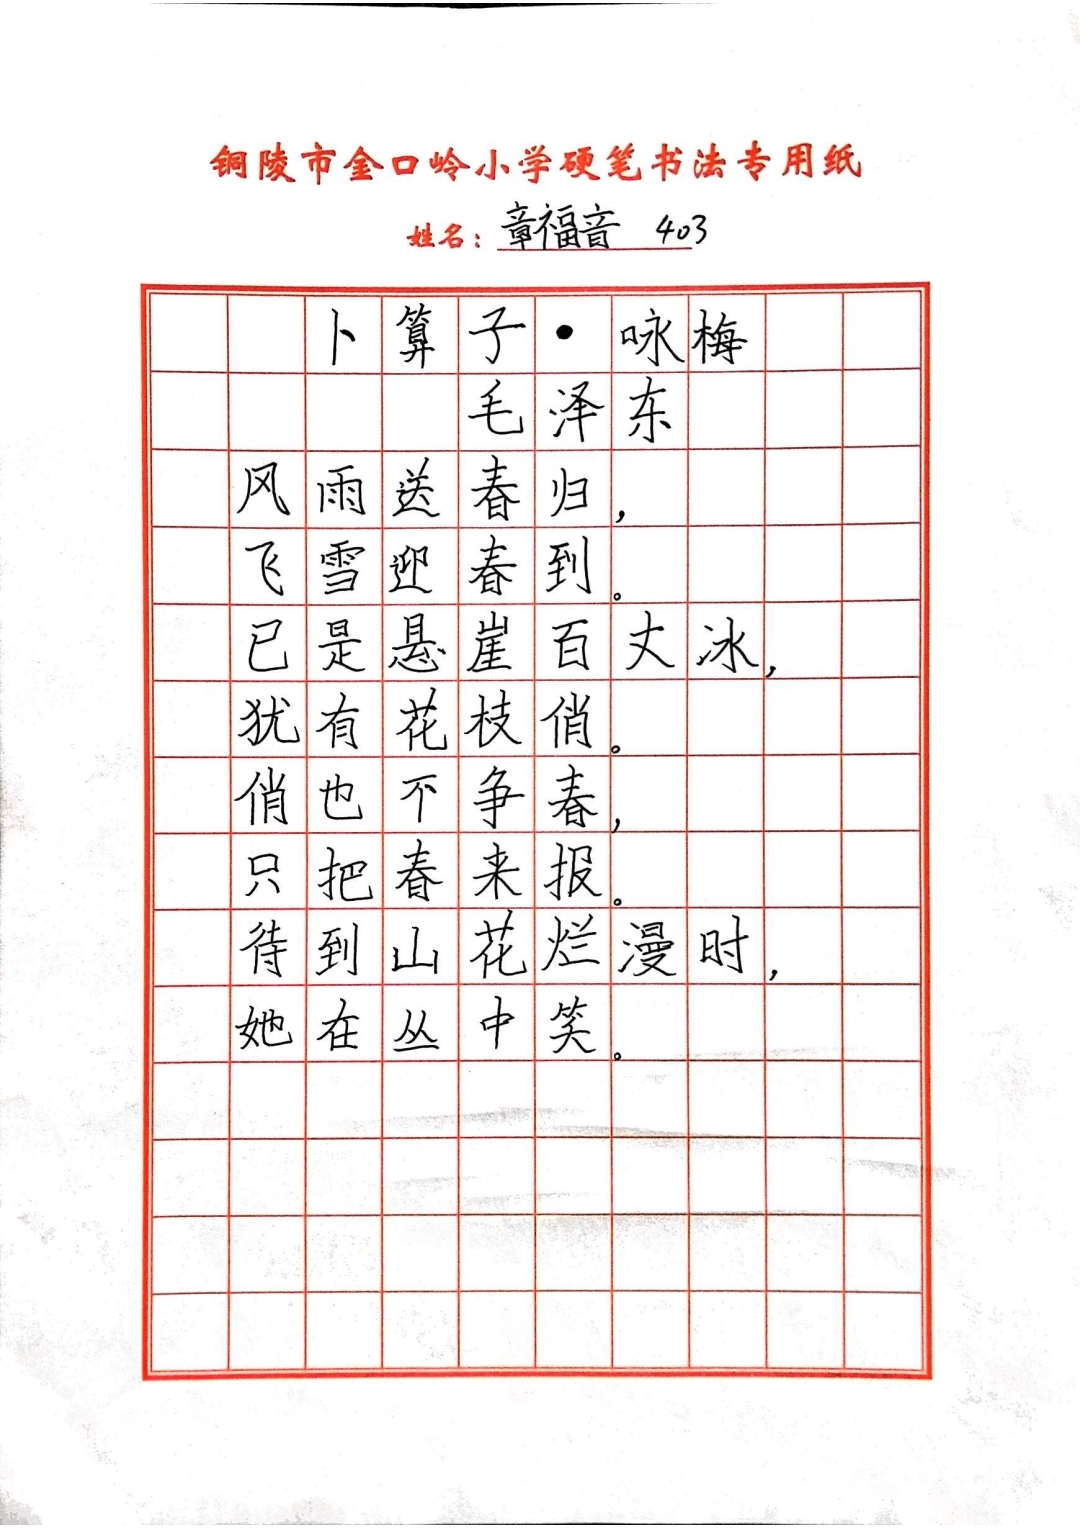 铜陵市金口岭小学硬笔书法专用纸
姓名：章福音 403
卜算子·咏梅
毛泽东
风雨送春归，
飞雪迎春到。
已是悬崖百丈冰，
犹有花枝俏。
俏也不争春，
只把春来报。
待到山花烂漫时，
她在丛中笑。